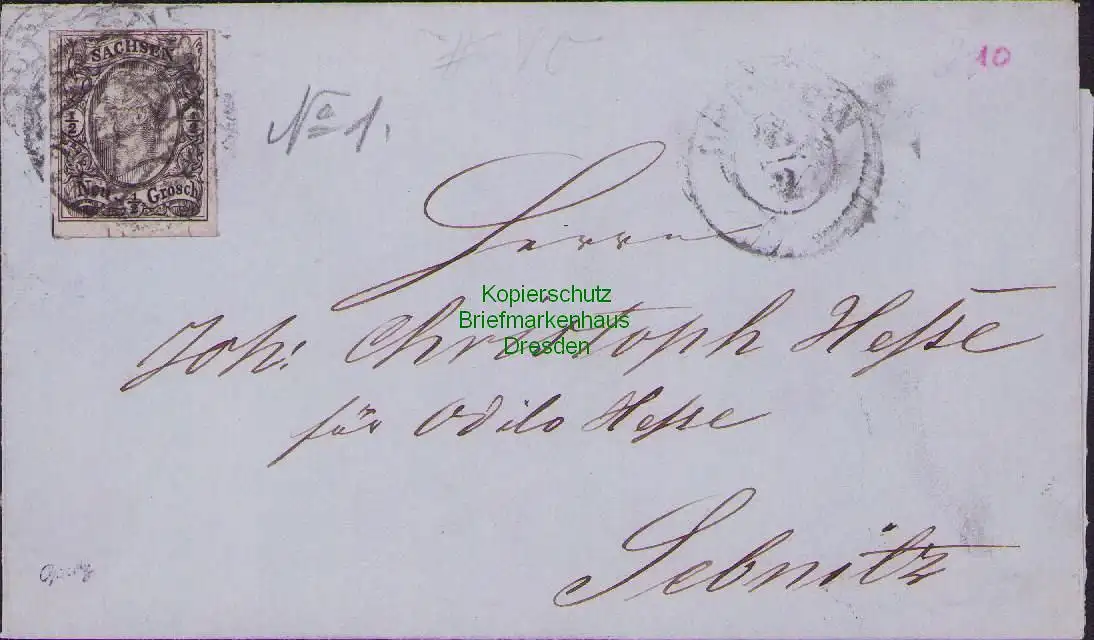 SACHSEN
½ ½
Neu ½ Grosch
No 1.
10
Herrn
Joh: Christoph Hesse
für Odilo Hesse
Sebnitz
Kopierschutz
Briefmarkenhaus
Dresden